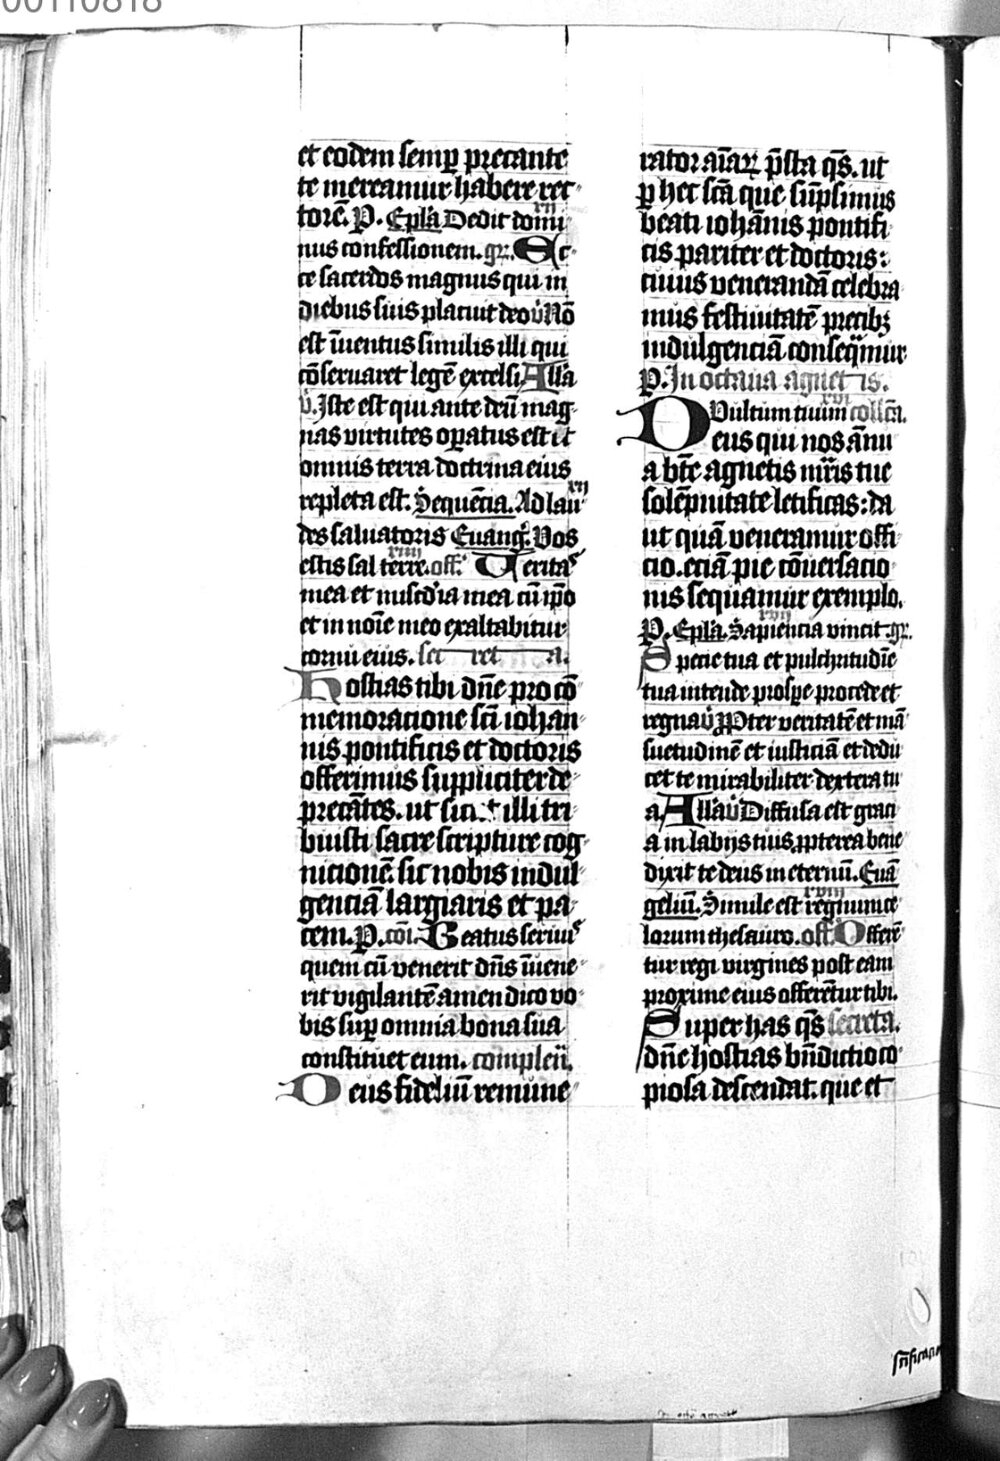 00110818
et eodem semꝑ precante
te mereamur habere rec-
torē. P. Epl̄a Dedit domi
xii
nus confessionem. gr̄. Ec-
ce sacerdos magnus qui in
diebus suis placuit deo v̓ Nō
est īuentus similis illi qui
cōseruaret legē excelsi. All̄a
v̓. Iste est qui ante deū mag-
nas virtutes oꝑatus est et
omnis terra doctrina eius
repleta est. Sequēcia. Ad lau-
xii
des saluatoris Euang̓. Vos
estis sal terre. off̄. Veritas
xiiii
mea et miscd̓ia mea cū ip̄o
et in noīe meo exaltabitur
cornu eius. sec ret a.
Hostias tibi dn̄e pro cō
memoracione sc̄i iohan-
nis pontificis et doctoris
offerimus suppliciter de-
precātes. ut sicut illi tri-
buisti sacre scripture cog-
nicionē. sic nobis indul-
genciā largiaris et pa-
cem. P. cōi. Beatus seruus
quem cū venerit dn̄s īuene-
rit vigilantē amen dico vo-
bis suꝑ omnia bona sua
constituet eum. complen̄.
Deus fideliū remune-
rator aīaꝝ p̄sta qs̄. ut
ꝑ hec sc̄a que sūpsimus
beati iohānis pontifi
cis pariter et doctoris:
cuius venerandā celebra
mus festiuitatē precibꝫ
indulgenciā conseq̄mur.
P. In octaua agnet is.
xvi
Vultum tuum collc̄a.
Deus qui nos ānu
a bt̄e agnetis mr̄is tue
solēpnitate letificas: da
ut quā veneramur offi-
cio. eciā pie cōuersacio
nis sequamur exemplo.
xvii
P. Epl̄a. Sapiencia vincit. gr̄.
Specie tua et pulchritudīe
tua intende prosꝑe procede et
regna v̓ Ꝓpter veritatē et mā
suetudinē et iusticiā et dedu
cet te mirabiliter dextera tu
a. All̄a v̓ Diffusa est graci
a in labijs tuis ꝓpterea bene
dixit te deus in eternū. Euā
geliū. Simile est regnum ce
xviii
lorum thesauro. off̄. Offerē
tur regi virgines post eam
proxime eius offerētur tibi.
Super has qs̄ secreta.
dn̄e hostias bn̄dictio co-
piosa descendat. que et